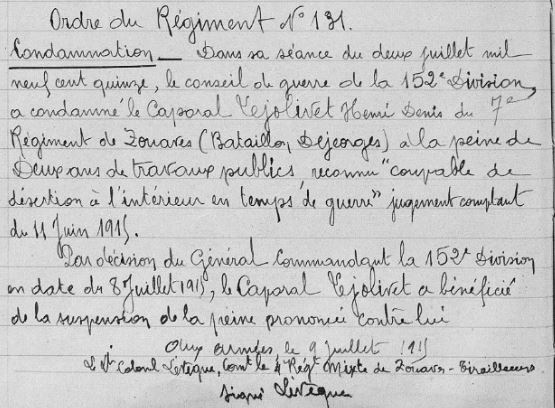 Ordre du Régiment N° 131.
Condamnation — Dans sa séance du deux juillet mil
neuf cent quinze, le conseil de guerre de la 152e Division,
a condamné le Caporal Lejolivet Henri Denis du 7e
Régiment de Zouaves (Bataillon Dejeorges) à la peine de
Deux ans de travaux publics, reconnu "coupable de
désertion à l'intérieur en temps de guerre" jugement comptant
du 11 Juin 1915.
Par décision du Général Commandant la 152e Division
en date du 8 Juillet 1915, le Caporal Lejolivet a bénéficié
de la suspension de la peine prononcée contre lui
Aux armées, le 9 Juillet 1915
Le Lt Colonel Levèque, Comt le 4e Régt Mixte de Zouaves - Tirailleurs
signé Levèque